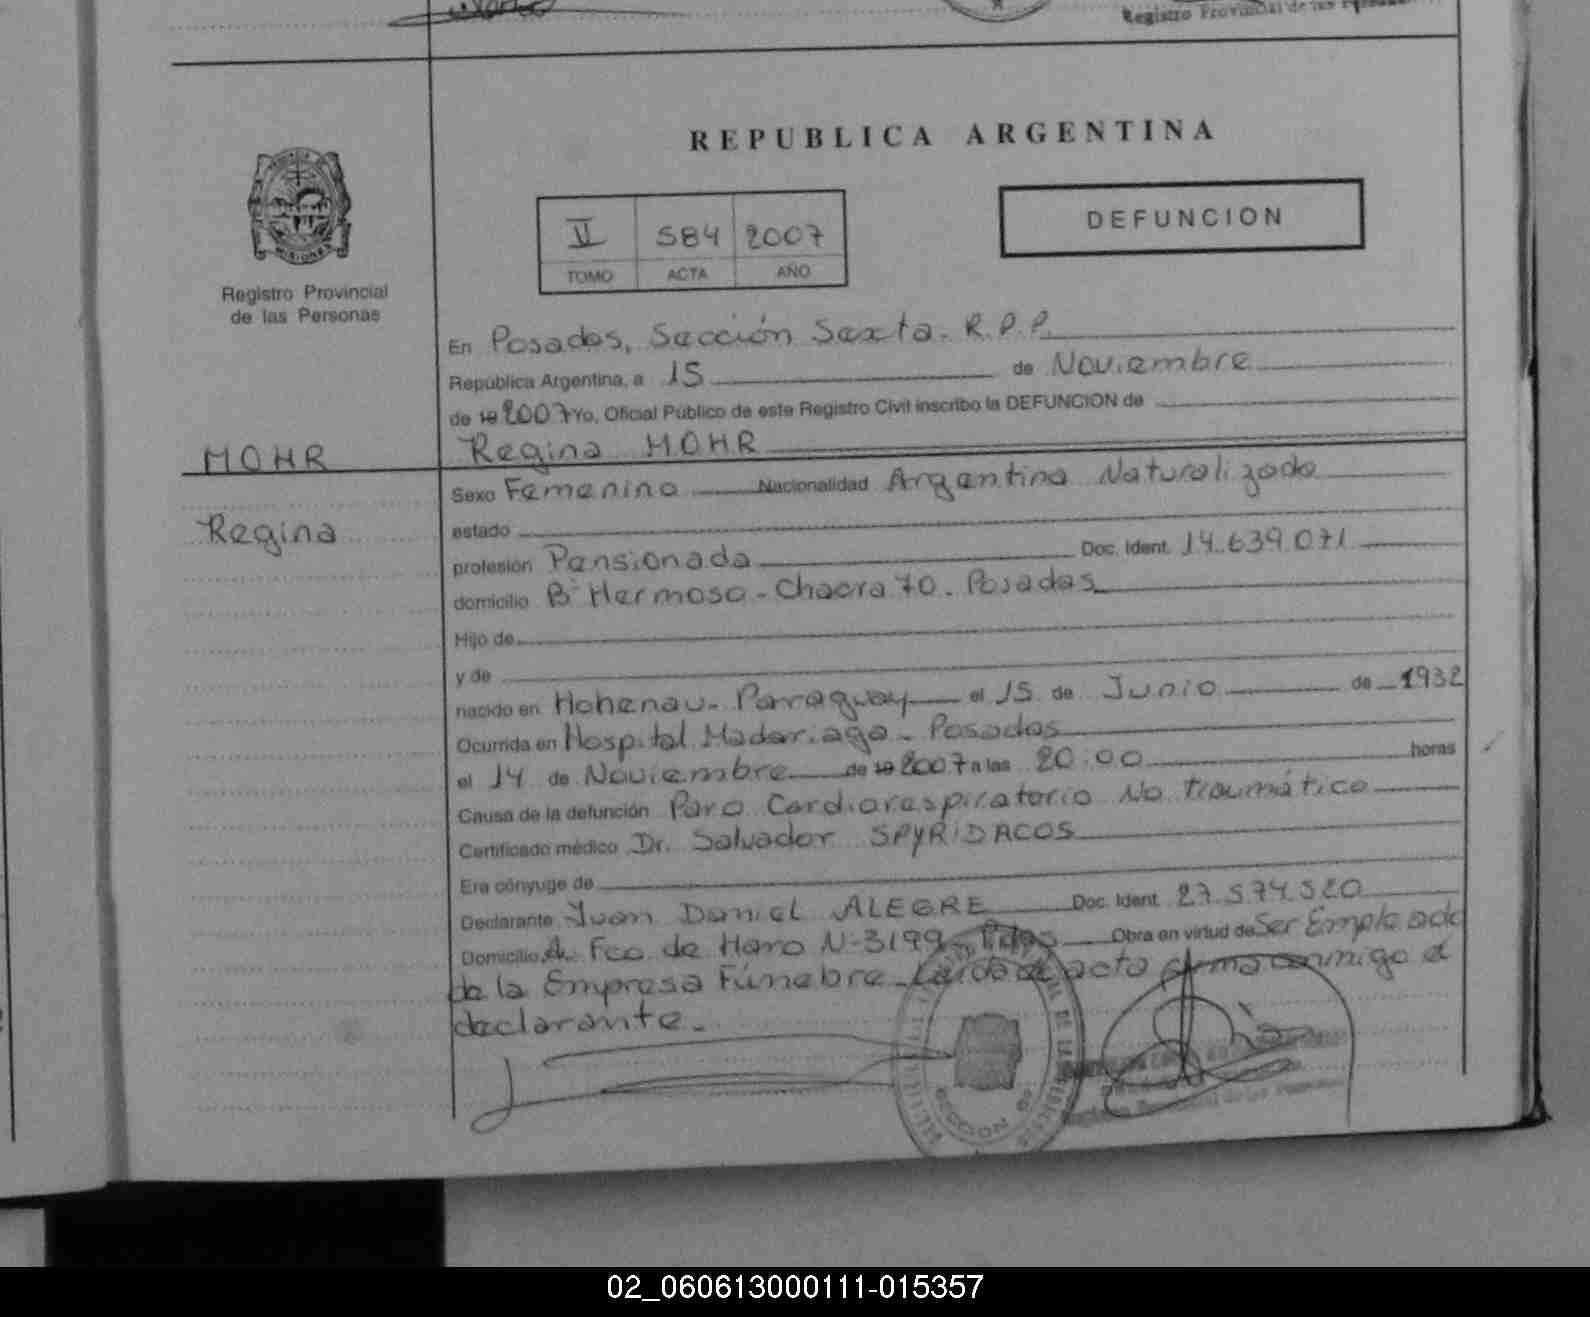 Registro Provincial de las Personas
REPUBLICA ARGENTINA
II 584 2007
TOMO ACTA AÑO
DEFUNCION
MISIONES
Registro Provincial
de las Personas
En Posadas, Sección Sexta. R.P.P.
República Argentina, a 15 de Noviembre
de 19 2007 Yo, Oficial Público de este Registro Civil inscribo la DEFUNCION de
MOHR
Regina MOHR
Sexo Femenino Nacionalidad Argentina Naturalizada
Regina
estado
profesión Pensionada Doc. Ident. 14.639.071
domicilio Bº Hermoso - Chacra 70. Posadas
Hijo de
y de
nacido en Hohenau - Paraguay el 15 de Junio de 1932
Ocurrida en Hospital Madariaga - Posadas
el 14 de Noviembre de 19 2007 a las 20:00 horas
Causa de la defunción Paro Cardiorespiratorio No traumático
Certificado médico Dr. Salvador SPYRIDACOS
Era cónyuge de
Declarante Juan Daniel ALEGRE Doc. Ident. 27.574.520
Domicilio Av. Fco. de Haro N-3199 - Pdas Obra en virtud de Ser Empleado
de la Empresa Fúnebre. Leida el acta firma conmigo el
declarante.
SECCION 6ª
02_060613000111-015357